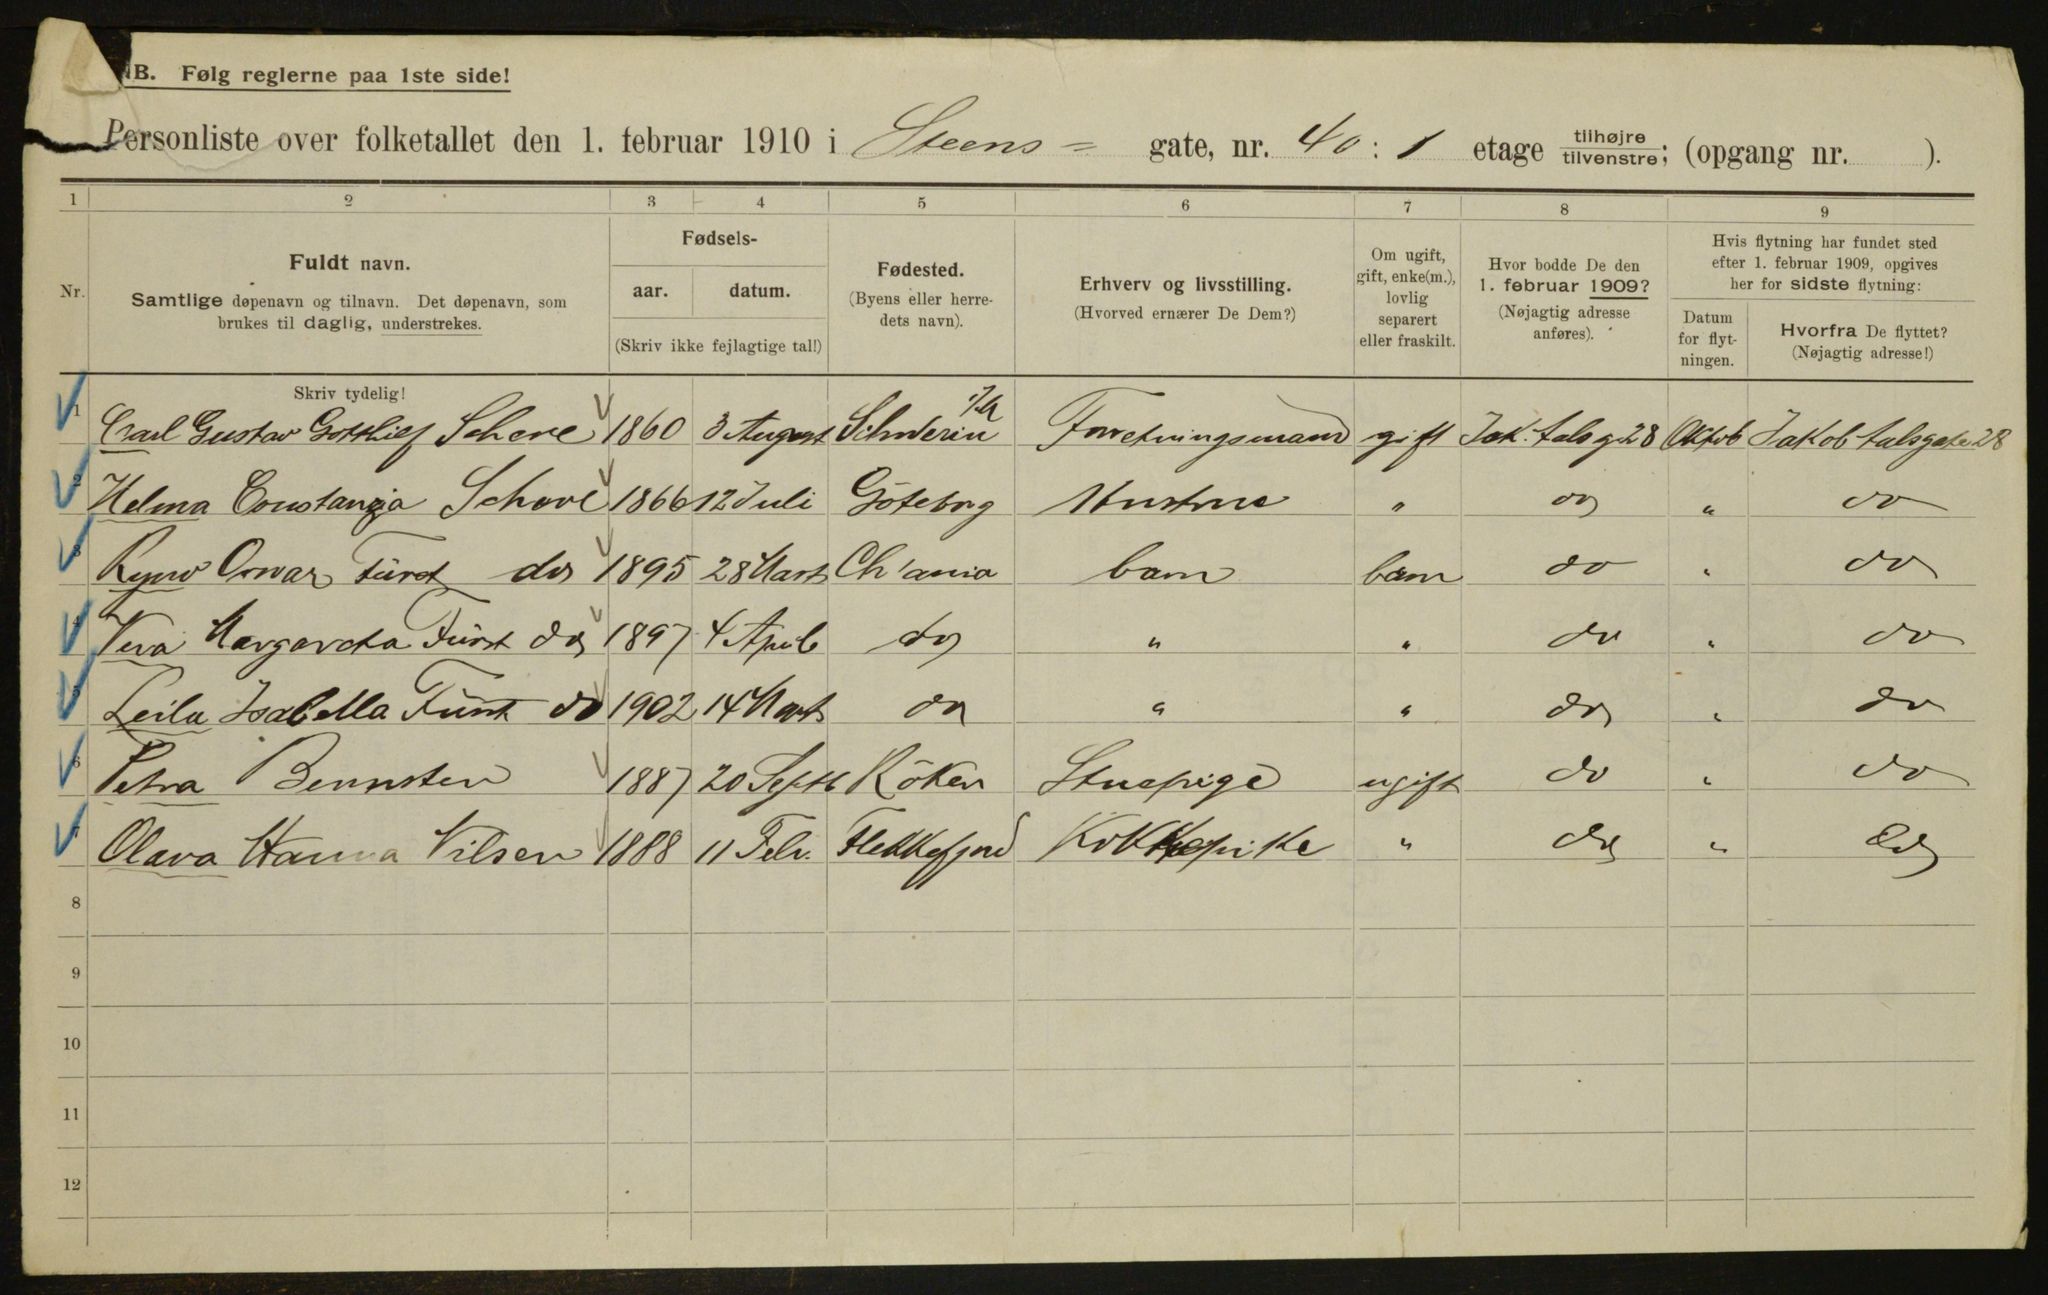 NB. Følg reglerne paa 1ste side!
Personliste over folketallet den 1. februar 1910 i Steens = gate, nr. 40 : 1 etage tilhøjre/tilvenstre; (opgang nr. ).
1 2 3 4 5 6 7 8 9
Nr.
Fuldt navn.
Samtlige døpenavn og tilnavn. Det døpenavn, som
brukes til daglig, understrekes.
Fødsels-
aar. datum.
(Skriv ikke fejlagtige tal!)
Fødested.
(Byens eller herre-
dets navn).
Erhverv og livsstilling.
(Hvorved ernærer De Dem?)
Om ugift,
gift, enke(m.),
lovlig
separert
eller fraskilt.
Hvor bodde De den
1. februar 1909?
(Nøjagtig adresse
anføres).
Hvis flytning har fundet sted
efter 1. februar 1909, opgives
her for sidste flytning:
Datum
for flyt-
ningen.
Hvorfra De flyttet?
(Nøjagtig adresse!)
Skriv tydelig!
1 Carl Gustav Gottlief Scheve 1860 3 August Schwerin Forretningsmand gift Jak. Aalsg 28 Oktob Jakob Aalsgate 28
2 Helma Constanzia Scheve 1866 12 Juli Göteborg Hustrue " do " do
3 Fürst do 1895 28 Marts Ch'ania barn barn do " do
4 Vera Margareta Fürst do 1897 4 April do " " do " do
5 Leila Isabella Fürst do 1902 14 Marts do " " do " do
6 Petra Bernsten 1887 20 Septb Röken Stuepige ugift do " do
7 Olava Hanna Nilsen 1888 11 Febr. Flekkefjord Kokkepike " do " do
8
9
10
11
12